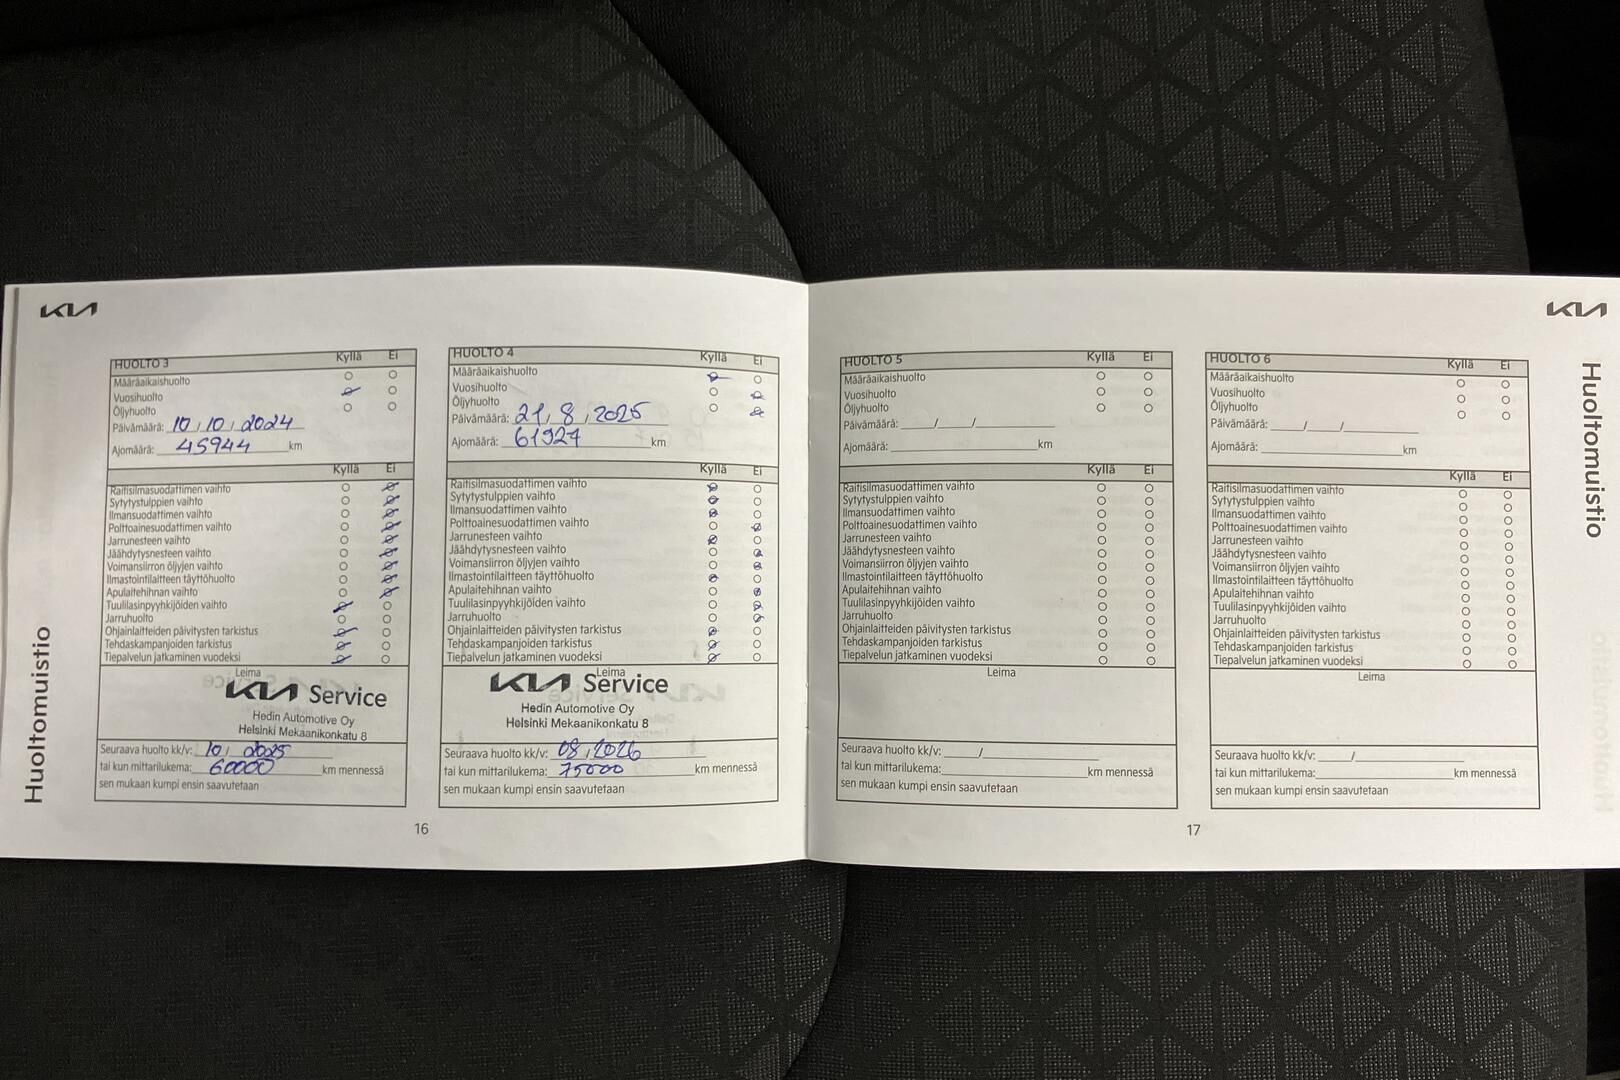 KIA
Huoltomuistio
HUOLTO 3 Kyllä Ei
Määräaikaishuolto
Vuosihuolto
Öljyhuolto
Päivämäärä: 10/10/2024
Ajomäärä: 45944 km
Kyllä Ei
Raitisilmasuodattimen vaihto
Sytytystulppien vaihto
Ilmansuodattimen vaihto
Polttoainesuodattimen vaihto
Jarrunesteen vaihto
Jäähdytysnesteen vaihto
Voimansiirron öljyjen vaihto
Ilmastointilaitteen täyttöhuolto
Apulaitehihnan vaihto
Tuulilasinpyyhkijöiden vaihto
Jarruhuolto
Ohjainlaitteiden päivitysten tarkistus
Tehdaskampanjoiden tarkistus
Tiepalvelun jatkaminen vuodeksi
Leima
KIA Service
Hedin Automotive Oy
Helsinki Mekaanikonkatu 8
Seuraava huolto kk/v: 10/2025
tai kun mittarilukema: 60000 km mennessä
sen mukaan kumpi ensin saavutetaan
HUOLTO 4 Kyllä Ei
Määräaikaishuolto
Vuosihuolto
Öljyhuolto
Päivämäärä: 21/8/2025
Ajomäärä: 61927 km
Kyllä Ei
Raitisilmasuodattimen vaihto
Sytytystulppien vaihto
Ilmansuodattimen vaihto
Polttoainesuodattimen vaihto
Jarrunesteen vaihto
Jäähdytysnesteen vaihto
Voimansiirron öljyjen vaihto
Ilmastointilaitteen täyttöhuolto
Apulaitehihnan vaihto
Tuulilasinpyyhkijöiden vaihto
Jarruhuolto
Ohjainlaitteiden päivitysten tarkistus
Tehdaskampanjoiden tarkistus
Tiepalvelun jatkaminen vuodeksi
Leima
KIA Service
Hedin Automotive Oy
Helsinki Mekaanikonkatu 8
Seuraava huolto kk/v: 08/2026
tai kun mittarilukema: 75000 km mennessä
sen mukaan kumpi ensin saavutetaan
16
KIA
Huoltomuistio
HUOLTO 5 Kyllä Ei
Määräaikaishuolto
Vuosihuolto
Öljyhuolto
Päivämäärä: / /
Ajomäärä: km
Kyllä Ei
Raitisilmasuodattimen vaihto
Sytytystulppien vaihto
Ilmansuodattimen vaihto
Polttoainesuodattimen vaihto
Jarrunesteen vaihto
Jäähdytysnesteen vaihto
Voimansiirron öljyjen vaihto
Ilmastointilaitteen täyttöhuolto
Apulaitehihnan vaihto
Tuulilasinpyyhkijöiden vaihto
Jarruhuolto
Ohjainlaitteiden päivitysten tarkistus
Tehdaskampanjoiden tarkistus
Tiepalvelun jatkaminen vuodeksi
Leima
Seuraava huolto kk/v: /
tai kun mittarilukema: km mennessä
sen mukaan kumpi ensin saavutetaan
HUOLTO 6 Kyllä Ei
Määräaikaishuolto
Vuosihuolto
Öljyhuolto
Päivämäärä: / /
Ajomäärä: km
Kyllä Ei
Raitisilmasuodattimen vaihto
Sytytystulppien vaihto
Ilmansuodattimen vaihto
Polttoainesuodattimen vaihto
Jarrunesteen vaihto
Jäähdytysnesteen vaihto
Voimansiirron öljyjen vaihto
Ilmastointilaitteen täyttöhuolto
Apulaitehihnan vaihto
Tuulilasinpyyhkijöiden vaihto
Jarruhuolto
Ohjainlaitteiden päivitysten tarkistus
Tehdaskampanjoiden tarkistus
Tiepalvelun jatkaminen vuodeksi
Leima
Seuraava huolto kk/v: /
tai kun mittarilukema: km mennessä
sen mukaan kumpi ensin saavutetaan
17